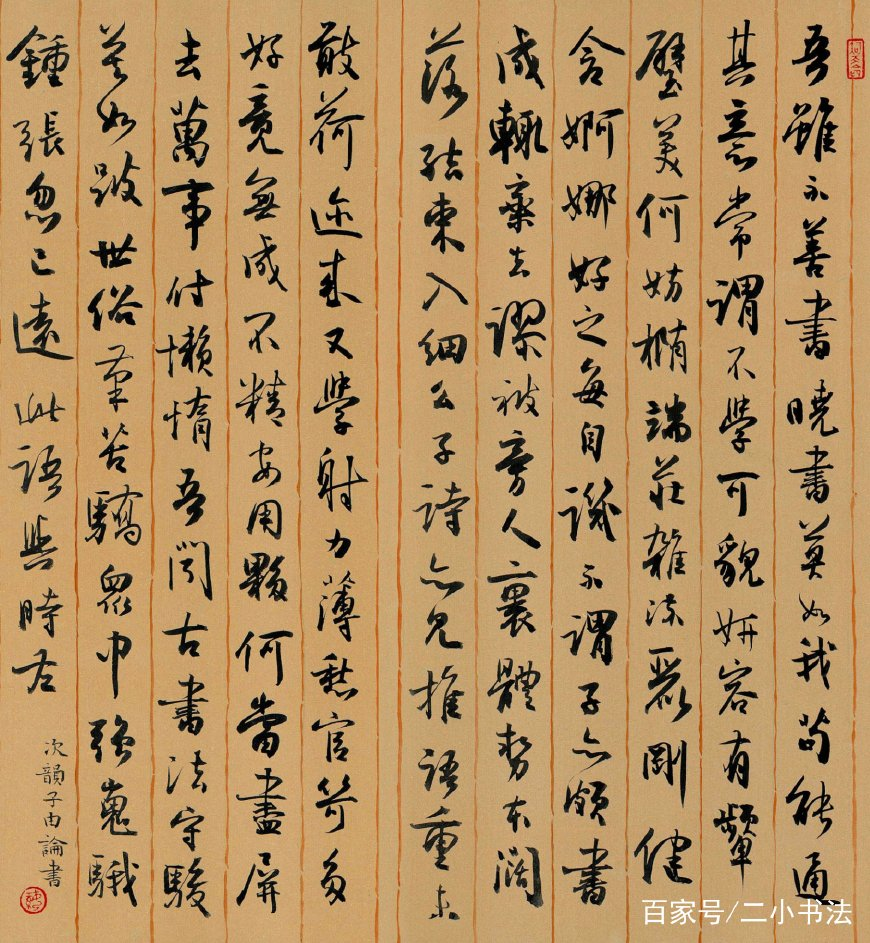 吾雖不善書曉書莫如我苟能通
其意常謂不學可貌妍容有顰
璧美何妨橢端莊雜流麗剛健
含婀娜好之每自譏不謂子亦頗書
成輒棄去謬被旁人裹體勢本闊
落結束入細么子詩亦見推語重未
敢荷迩來又學射力薄愁官笴多
好竟無成不精安用夥何當盡屏
去萬事付懶惰吾聞古書法守駿
莫如跛世俗筆苦驕眾中強嵬騀
鍾張忽已遠此語與時左
次韻子由論書
百家号/二小书法